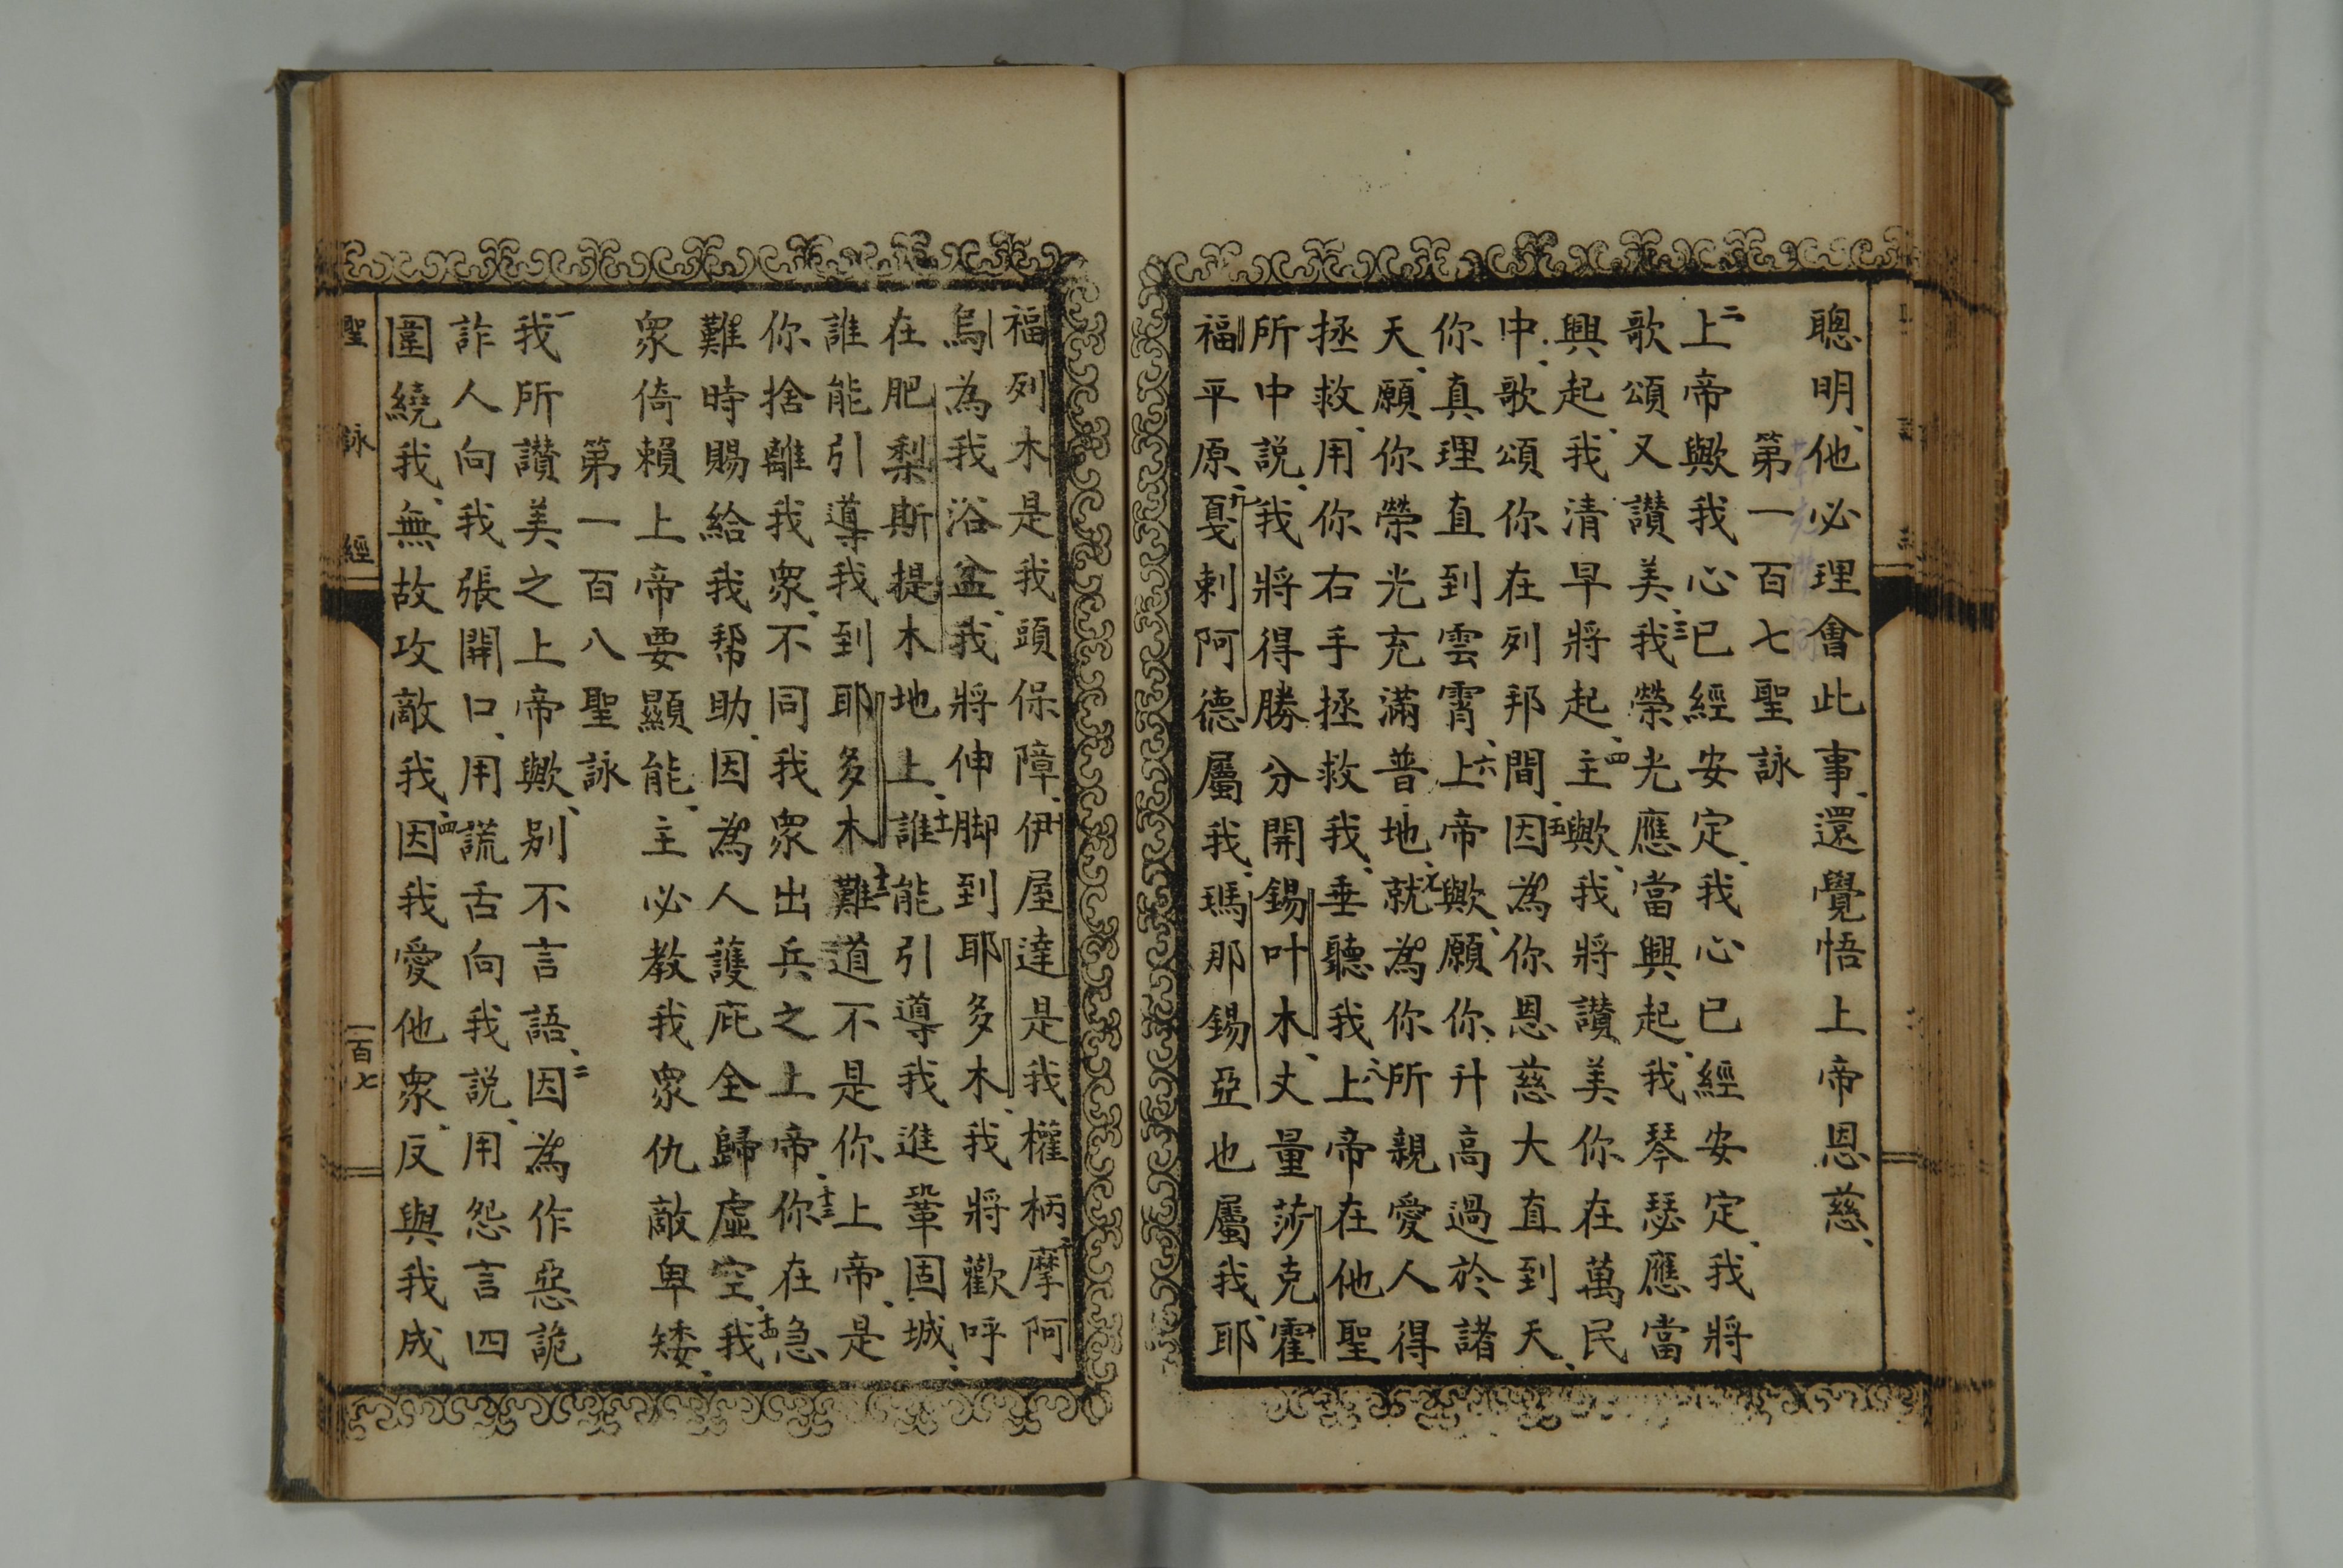 聰明、他必理會此事、還覺悟上帝恩慈、
第一百七聖詠
二上帝歟我心已經安定、我心已經安定、我將
歌頌又讚美、三我榮光應當興起、我琴瑟應當
興起、我清早將起、四主歟、我將讚美你在萬民
中、歌頌你在列邦間、五因為你恩慈大直到天、
你真理直到雲霄、六上帝歟、願你升高過於諸
天、願你榮光充滿普地、七就為你所親愛人得
拯救、用你右手拯救我、垂聽我、八上帝在他聖
所中說、我將得勝分開錫叶木、丈量莎克霍
福平原、九戛剌阿德屬我、瑪那錫亞也屬我、耶
福列木是我頭保障、伊屋達是我權柄、十摩阿
烏為我浴盆、我將伸脚到耶多木、我將歡呼
在肥梨斯提木地上、十一誰能引導我進鞏固城、
誰能引導我到耶多木、十二難道不是你上帝、是
你捨離我衆、不同我衆出兵之上帝、十三你在急
難時賜給我帮助、因為人護庇全歸虛空、十四我
衆倚賴上帝要顯能、主必教我衆仇敵卑矮、
第一百八聖詠
一我所讚美之上帝歟、别不言語、二因為作惡詭
詐人向我張開口、用謊舌向我說、用怨言四
圍繞我、無故攻敵我、四因我愛他衆、反與我成
聖詠經
一百七